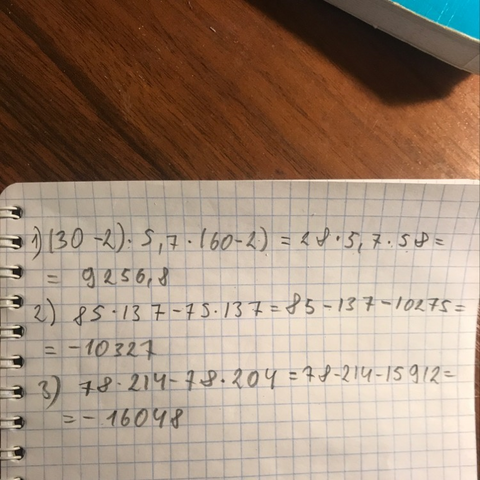 1) (30-2)·5,7·(60-2)=28·5,7·58=
= 9256,8
2) 85·137-75·137=85-137-10275=
= -10327
3) 78·214-78·204=78-214-15912=
= - 16048